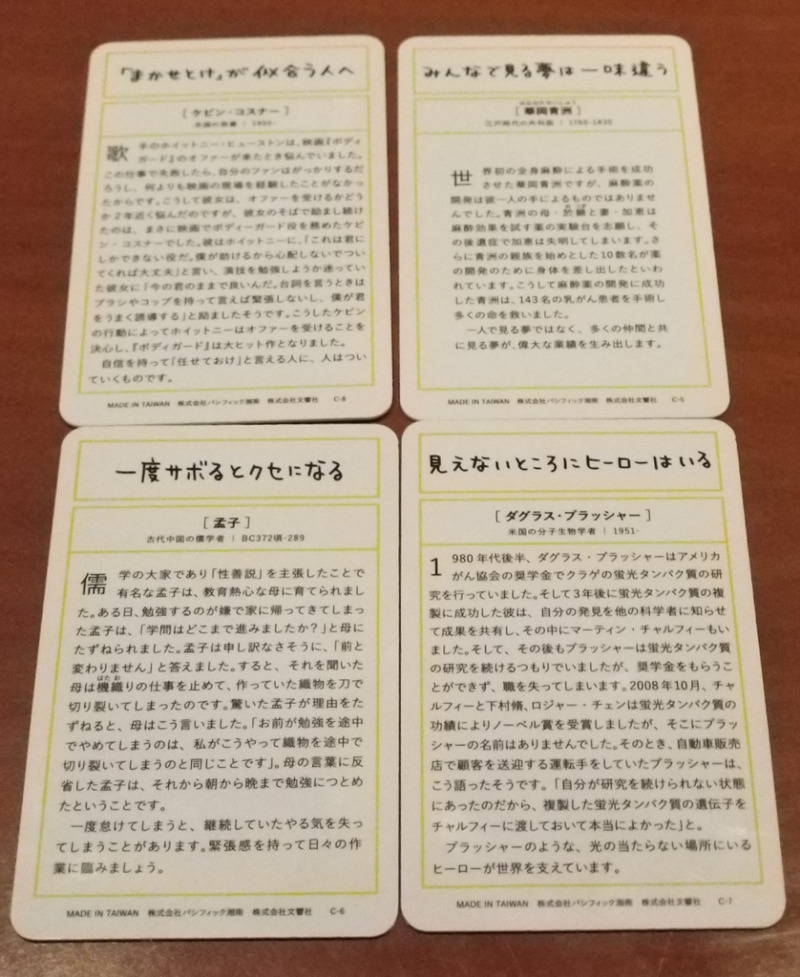 「まかせとけ」が似合う人へ
[ケビン・コスナー]
米国の俳優 | 1955-
歌 手のホイットニー・ヒューストンは、映画『ボディ
ガード』のオファーが来たとき悩んでいました。
この仕事で失敗したら、自分のファンはがっかりするだ
ろうし、何よりも映画の現場を経験したことがなかっ
たからです。こうして彼女は、オファーを受けるかどう
か2年近く悩んだのですが、彼女のそばで励まし続け
たのは、まさに映画でボディーガード役を務めたケビ
ン・コスナーでした。彼はホイットニーに、「これは君に
しかできない役だ。僕が助けるから心配しないでつい
てくれば大丈夫」と言い、演技を勉強しようか迷ってい
た彼女に「今の君のままで良いんだ。台詞を言うときは
ブラシやコップを持って言えば緊張しないし、僕が君
をうまく誘導する」と励ましたそうです。こうしたケビン
の行動によってホイットニーはオファーを受けることを
決心し、『ボディガード』は大ヒット作となりました。
自信を持って「任せておけ」と言える人に、人はつい
ていくものです。
MADE IN TAIWAN 株式会社パシフィック湘南 株式会社文響社 C-8
みんなで見る夢は一味違う
[華岡青洲]
江戸時代の外科医 | 1760-1835
世 界初の全身麻酔による手術を成功
させた華岡青洲ですが、麻酔薬の
開発は彼一人の手によるものではありませ
んでした。青洲の母・於継と妻・加恵は
麻酔効果を試す薬の実験台を志願し、そ
の後遺症で加恵は失明してしまいます。さ
らに青洲の親族を始めとした10数名が薬
の開発のために身体を差し出したといわ
れています。こうして麻酔薬の開発に成功
した青洲は、143名の乳がん患者を手術し
多くの命を救いました。
一人で見る夢ではなく、多くの仲間と共
に見る夢が、偉大な業績を生み出します。
MADE IN TAIWAN 株式会社パシフィック湘南 株式会社文響社 C-5
一度サボるとクセになる
[孟子]
古代中国の儒学者 | BC372頃-289
儒 学の大家であり「性善説」を主張したことで
有名な孟子は、教育熱心な母に育てられまし
た。ある日、勉強するのが嫌で家に帰ってきてしまっ
た孟子は、「学問はどこまで進みましたか?」と母に
たずねられました。孟子は申し訳なさそうに、「前と
変わりません」と答えました。すると、それを聞いた
はたお
母は機織りの仕事を止めて、作っていた織物を刀で
切り裂いてしまったのです。驚いた孟子が理由をた
ずねると、母はこう言いました。「お前が勉強を途中
でやめてしまうのは、私がこうやって織物を途中で
切り裂いてしまうのと同じことです」。母の言葉に反
省した孟子は、それから朝から晩まで勉強につとめ
たということです。
一度怠けてしまうと、継続していたやる気を失っ
てしまうことがあります。緊張感を持って日々の作
業に臨みましょう。
MADE IN TAIWAN 株式会社パシフィック湘南 株式会社文響社 C-6
見えないところにヒーローはいる
[ダグラス・プラッシャー]
米国の分子生物学者 | 1951-
1 980年代後半、ダグラス・プラッシャーはアメリカ
がん協会の奨学金でクラゲの蛍光タンパク質の研
究を行っていました。そして3年後に蛍光タンパク質の複
製に成功した彼は、自分の発見を他の科学者に知らせ
て成果を共有し、その中にマーティン・チャルフィーもい
ました。そして、その後もプラッシャーは蛍光タンパク質
の研究を続けるつもりでいましたが、奨学金をもらうこ
とができず、職を失ってしまいます。2008年10月、チャ
ルフィーと下村脩、ロジャー・チェンは蛍光タンパク質の
功績によりノーベル賞を受賞しましたが、そこにプラッ
シャーの名前はありませんでした。そのとき、自動車販売
店で顧客を送迎する運転手をしていたプラッシャーは、
こう語ったそうです。「自分が研究を続けられない状態
にあったのだから、複製した蛍光タンパク質の遺伝子を
チャルフィーに渡しておいて本当によかった」と。
プラッシャーのような、光の当たらない場所にいる
ヒーローが世界を支えています。
MADE IN TAIWAN 株式会社パシフィック湘南 株式会社文響社 C-7